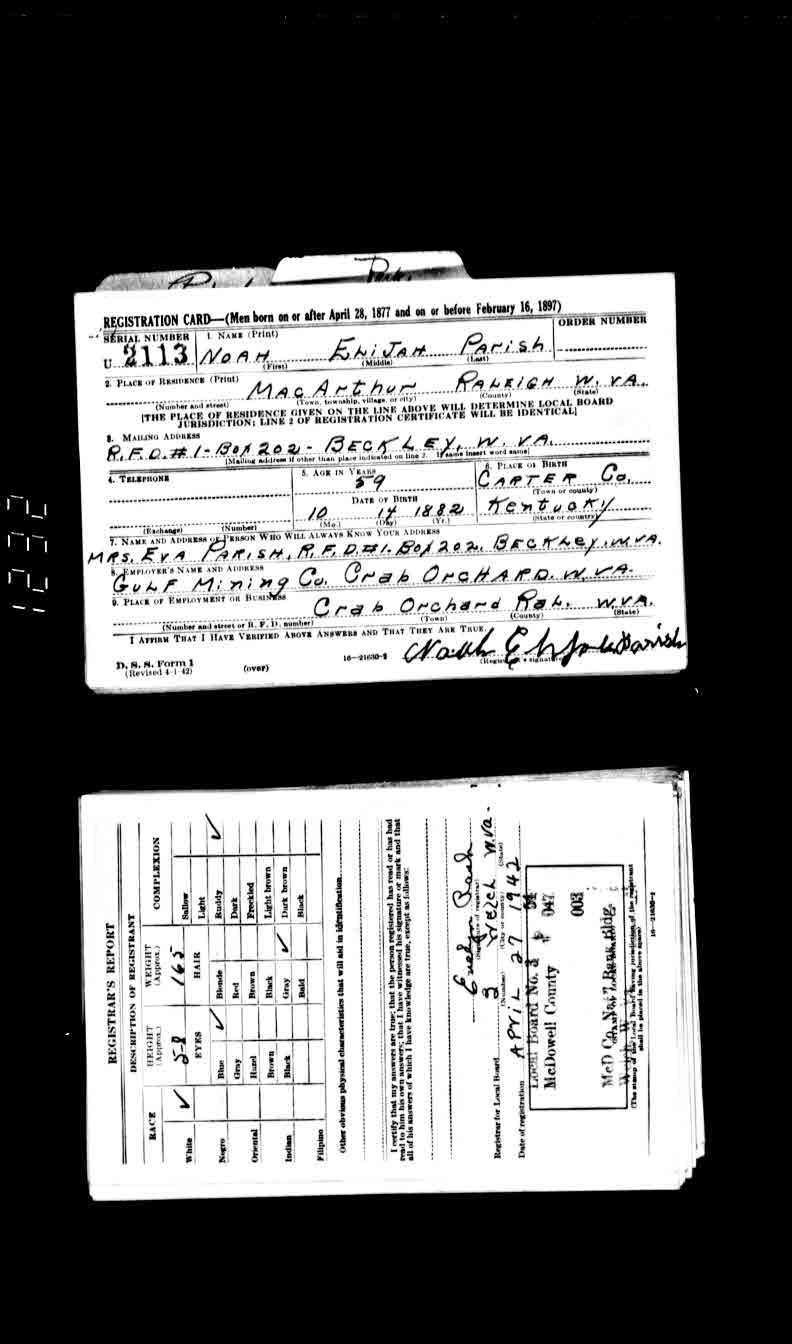 REGISTRATION CARD—(Men born on or after April 28, 1877 and on or before February 16, 1897)
SERIAL NUMBER 1. NAME (Print) ORDER NUMBER
U 2113 NOAH ELIJAH PARISH
(First) (Middle) (Last)
2. PLACE OF RESIDENCE (Print)
MAC ARTHUR RALEIGH W. VA.
(Number and street) (Town, township, village, or city) (County) (State)
[THE PLACE OF RESIDENCE GIVEN ON THE LINE ABOVE WILL DETERMINE LOCAL BOARD
JURISDICTION; LINE 2 OF REGISTRATION CERTIFICATE WILL BE IDENTICAL]
3. MAILING ADDRESS
R.F.D.#1-BOX 202- BECKLEY, W. VA.
[Mailing address if other than place indicated on line 2. If same insert word same]
4. TELEPHONE 5. AGE IN YEARS 6. PLACE OF BIRTH
59 CARTER Co.
(Town or county)
DATE OF BIRTH
10 14 1882 Kentucky
(Exchange) (Number) (Mo.) (Day) (Yr.) (State or country)
7. NAME AND ADDRESS OF PERSON WHO WILL ALWAYS KNOW YOUR ADDRESS
MRS. EVA PARISH, R.F.D.#1. BOX 202. BECKLEY, W.VA.
8. EMPLOYER'S NAME AND ADDRESS
GULF Mining Co. Crab ORCHARD. W. VA.
9. PLACE OF EMPLOYMENT OR BUSINESS
Crab Orchard Ral. W.VA.
(Number and street or R. F. D. number) (Town) (County) (State)
I AFFIRM THAT I HAVE VERIFIED ABOVE ANSWERS AND THAT THEY ARE TRUE.
Noah Elijah Parish
D. S. S. Form 1
(Revised 4-1-42) (over) 16—21630-2
1232
REGISTRAR'S REPORT
DESCRIPTION OF REGISTRANT
RACE HEIGHT (Approx.) WEIGHT (Approx.) COMPLEXION
White ✓ 5-8 165 Sallow
EYES HAIR Light
Negro Blue ✓ Blonde Ruddy ✓
Gray Red Dark
Oriental Hazel Brown Freckled
Brown Black Light brown
Indian Black Gray ✓ Dark brown
Filipino Bald Black
Other obvious physical characteristics that will aid in identification
I certify that my answers are true; that the person registered has read or has had
read to him his own answers; that I have witnessed his signature or mark and that
all of his answers of which I have knowledge are true, except as follows:
(Signature of registrar)
Registrar for Local Board 3 Welch W.Va.
(Number) (City or county) (State)
Date of registration APRIL 27 1942
Local Board No. 3
McDowell County 047
003
McD Co. Nat'l Bank Bldg.
Welch, W. Va.
(The stamp of the Local Board having jurisdiction of the registrant
shall be placed in the above space)
16—21630-2